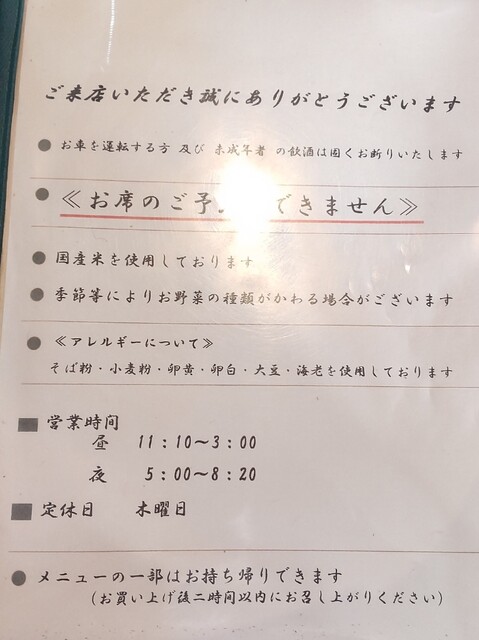 ご来店いただき誠にありがとうございます
● お車を運転する方 及び 未成年者 の飲酒は固くお断りいたします
● ≪お席のご予 できません≫
● 国産米を使用しております
● 季節等によりお野菜の種類がかわる場合がございます
● ≪アレルギーについて≫
そば粉・小麦粉・卵黄・卵白・大豆・海老を使用しております
■ 営業時間
昼 11:10～3:00
夜 5:00～8:20
■ 定休日 木曜日
● メニューの一部はお持ち帰りできます
(お買い上げ後二時間以内にお召し上がりください)